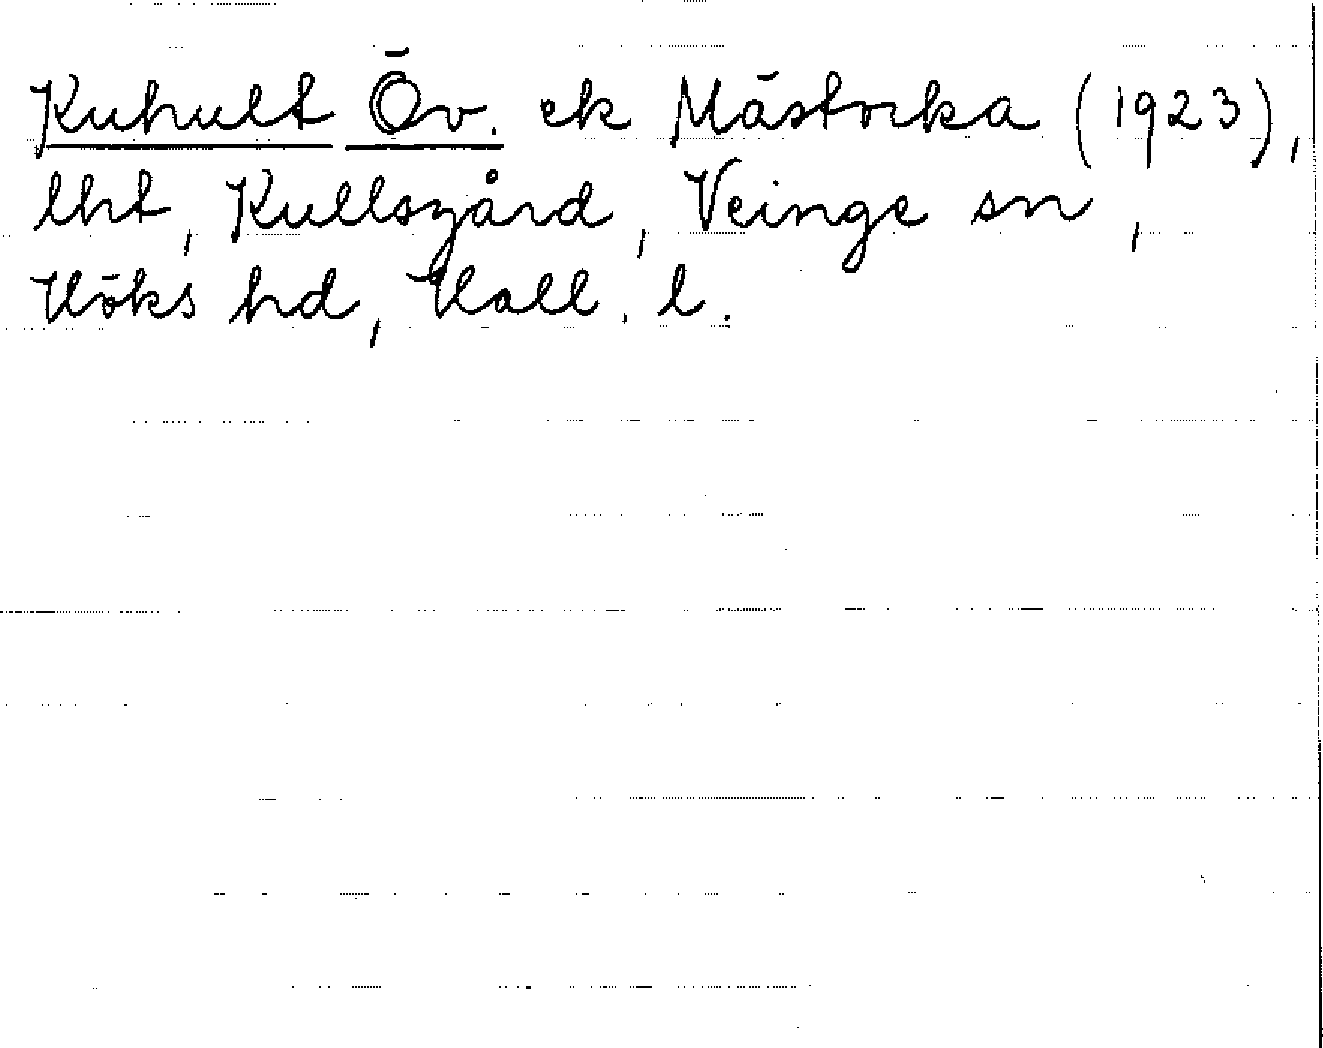 Kuhult Öv. ek Mästocka (1923),
lht, Kullsgård, Veinge sn,
Höks hd, Hall. l.